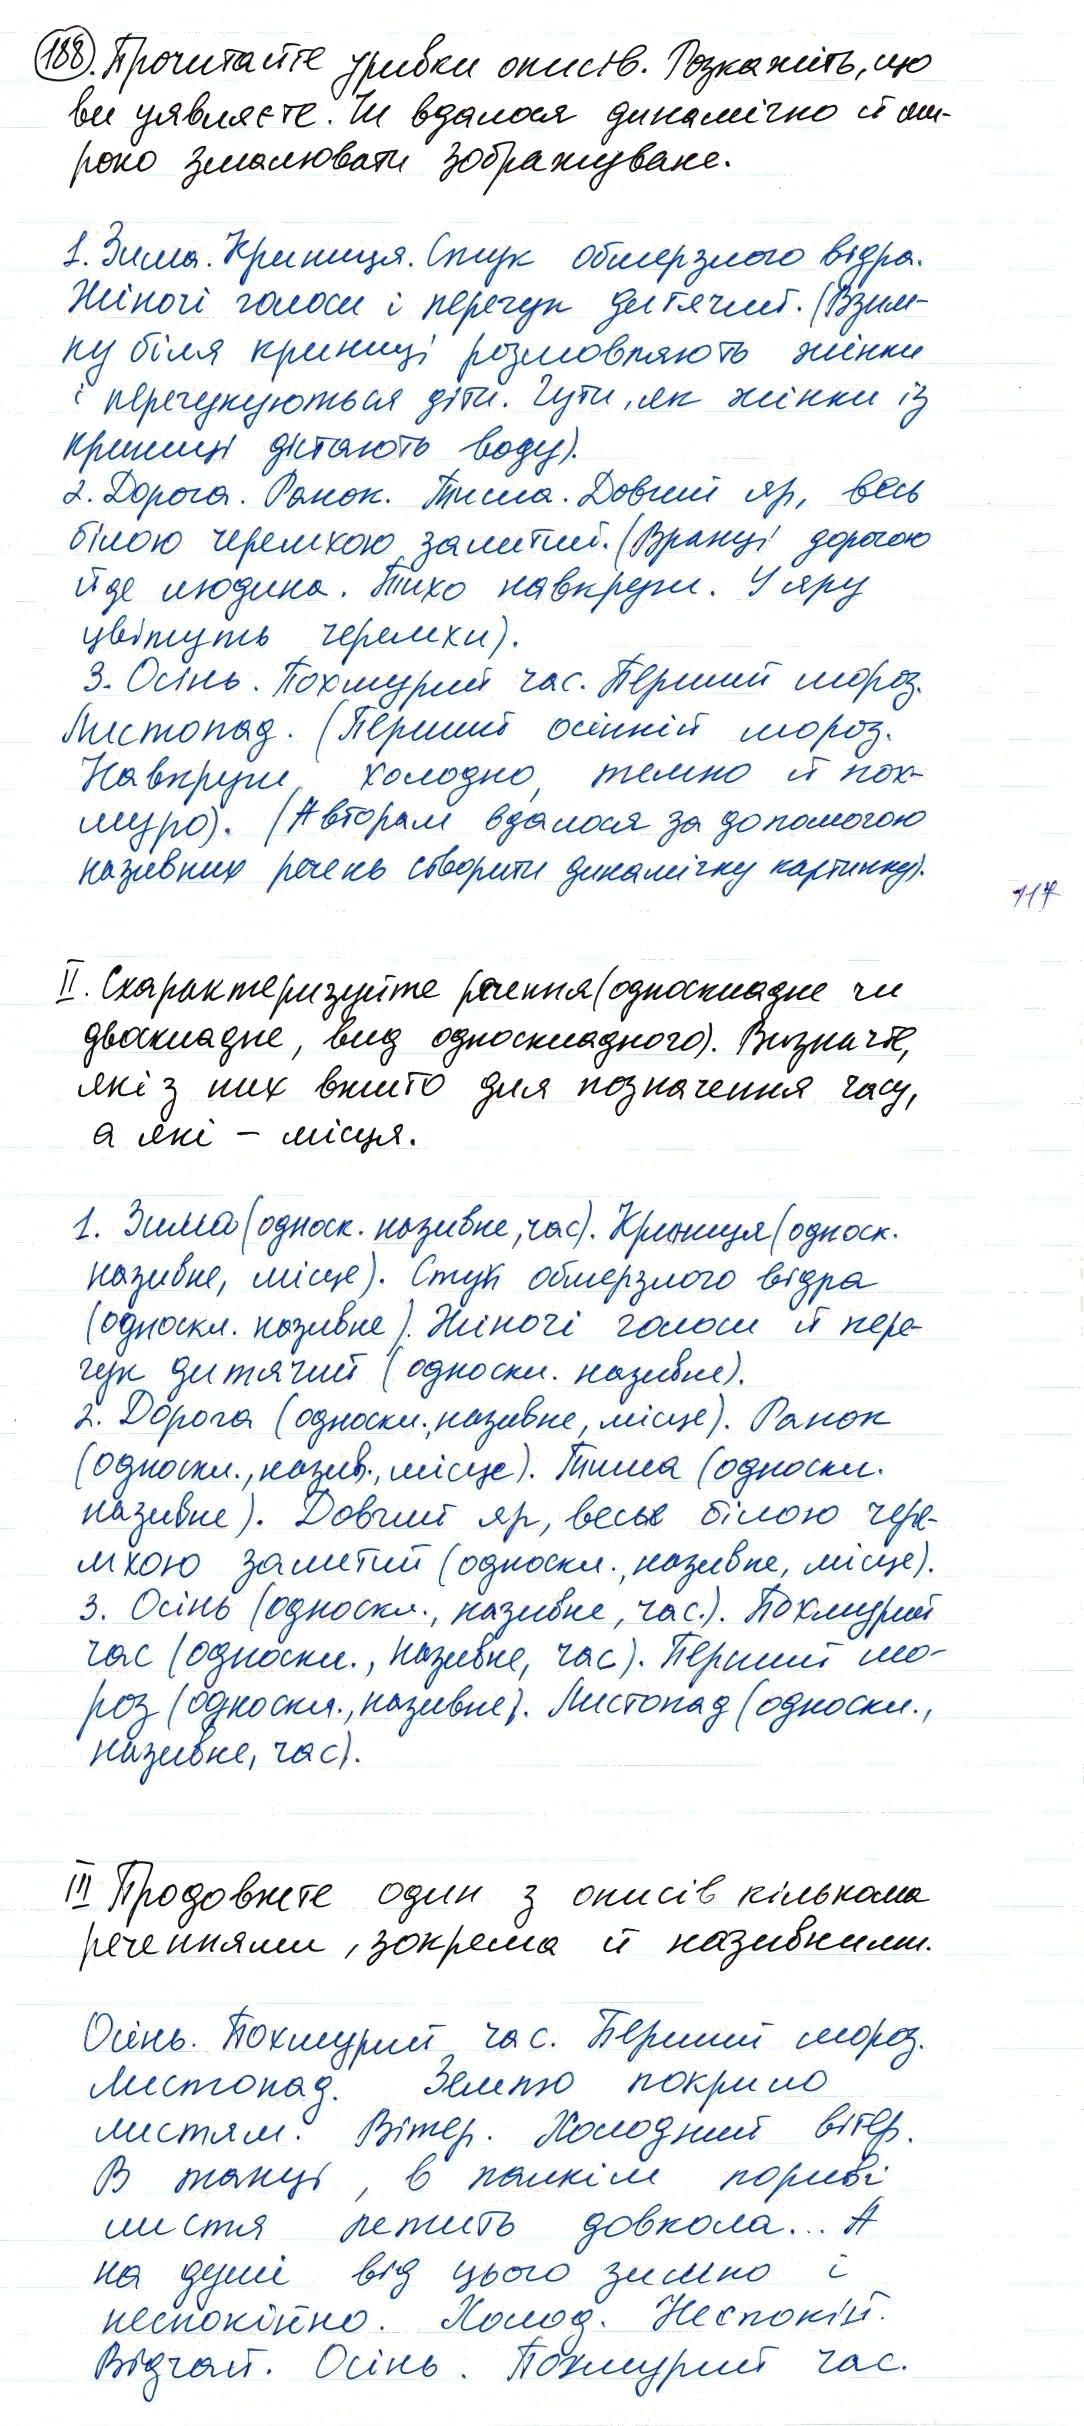 188. Прочитайте уривки описів. Розкажіть, що
ви уявляєте. Чи вдалося динамічно й ши-
роко змалювати зображуване.
1. Зима. Криниця. Стук обмерзлого відра.
Жіночі голоси і перегук дитячий. (Взим-
ку біля криниці розмовляють жінки
і перегукуються діти. Чути, як жінки із
криниці дістають воду).
2. Дорога. Ранок. Тиша. Довгий яр, весь
білою черемхою залитий. (Вранці дорогою
йде людина. Тихо навкруги. У яру
цвітуть черемхи).
3. Осінь. Похмурий час. Перший мороз.
Листопад. (Перший осінній мороз.
Навкруги холодно, темно й пох-
муро). (Авторам вдалося за допомогою
називних речень створити динамічну картинку).
117
II. Схарактеризуйте речення (односкладне чи
двоскладне, вид односкладного). Визначте,
які з них вжито для позначення часу,
а які - місця.
1. Зима (односк. називне, час). Криниця (односк.
називне, місце). Стук обмерзлого відра
(односкл. називне). Жіночі голоси й пере-
гук дитячий (односкл. називне).
2. Дорога (односкл., називне, місце). Ранок
(односкл., назив., місце). Тиша (односкл.
називне). Довгий яр, весь білою чере-
мхою залитий (односкл., називне, місце).
3. Осінь (односкл., називне, час.). Похмурий
час (односкл., називне, час). Перший мо-
роз (односкл., називне). Листопад (односкл.,
називне, час).
III Продовжте один з описів кількома
реченнями, зокрема й називними.
Осінь. Похмурий час. Перший мороз.
Листопад. Землю покрило
листям. Вітер. Холодний вітер.
В танці, в палкім пориві
листя летить довкола... А
на душі від цього зимно і
неспокійно. Холод. Неспокій.
Відчай. Осінь. Похмурий час.